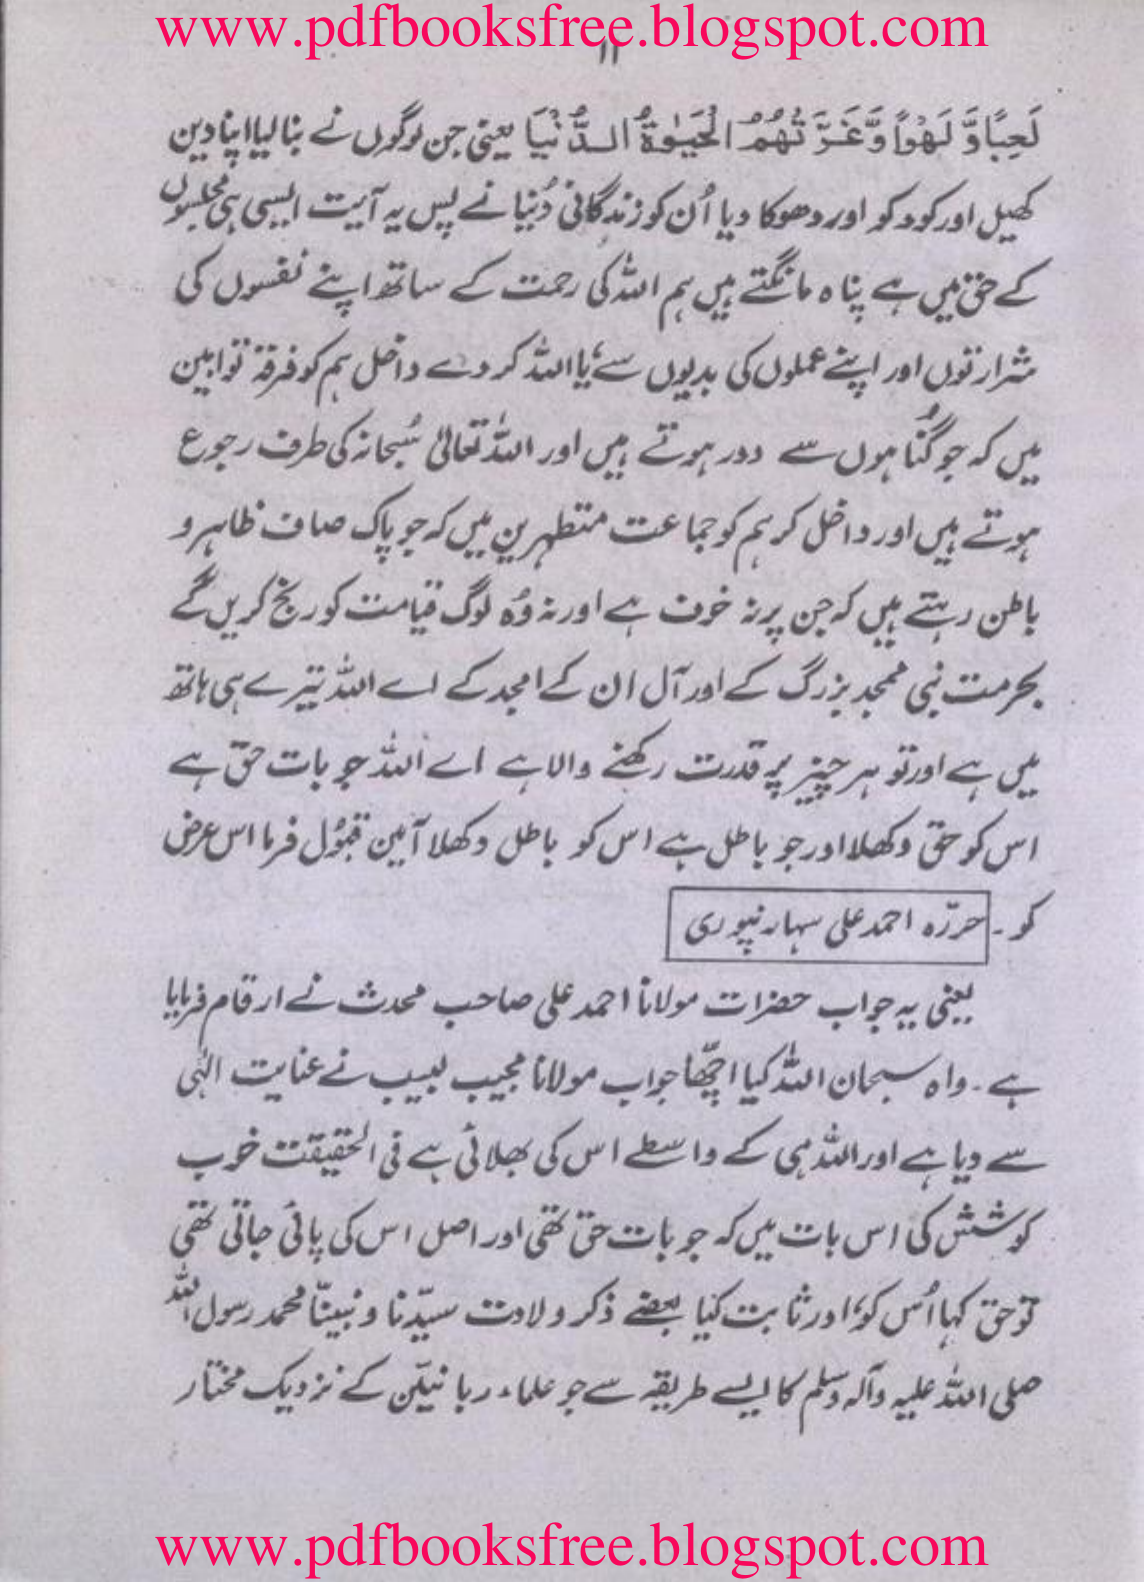 www.pdfbooksfree.blogspot.com
۱۱
لَعِبًا وَّ لَهْواً وَّغَرَّ تْهُمُ الْحَيٰوةُ الـدُّنْيَا یعنی جن لوگوں نے بنا لیا اپنا دین
کھیل اور کود کو اور دھوکا دیا اُن کو زندگانی دُنیا نے پس یہ آیت ایسی ہی مجلسوں
کے حق میں ہے پناہ مانگتے ہیں ہم اللہ کی رحمت کے ساتھ اپنے نفسوں کی
شرارتوں اور اپنے عملوں کی بدیوں سے یا اللہ کر دے داخل ہم کو فرقۂ توابین
میں کہ جو گُناہوں سے دور ہوتے ہیں اور اللہ تعالیٰ سُبحانہ کی طرف رجوع
ہوتے ہیں اور داخل کر ہم کو جماعت متطہرین میں کہ جو پاک صاف ظاہر و
باطن رہتے ہیں کہ جن پر نہ خوف ہے اور نہ وُہ لوگ قیامت کو رنج کریں گے
بحرمت نبی ممجد بزرگ کے اور آل ان کے امجد کے اے اللہ تیرے ہی ہاتھ
میں ہے اور تو ہر چیز پر قدرت رکھنے والا ہے اے اللہ جو بات حقّ ہے
اس کو حق دکھلا اور جو باطل ہے اس کو باطل دکھلا آمین قبُول فرما اس عرض
کو ۔ حررّہ احمد علی سہارنپوری
یعنی یہ جواب حضرات مولانا احمد علی صاحب محدث نے ارقام فرمایا
ہے ۔ واہ سبحان اللہ کیا اچھّا جواب مولانا مجیب لبیب نے عنایت الٰہی
سے دیا ہے اور اللہ ہی کے واسطے اس کی بھلائی ہے فی الحقیقت خوب
کوشش کی اس بات میں کہ جو بات حق تھی اور اصل اس کی پائی جاتی تھی
تو حق کہا اُس کو، اور ثابت کیا بعضے ذکر ولادت سیّدنا و نبینّا محمد رسول اللہ
صلی اللہ علیہ وآلہ وسلم کا ایسے طریقہ سے جو علماء ربانیّن کے نزدیک مختار
www.pdfbooksfree.blogspot.com